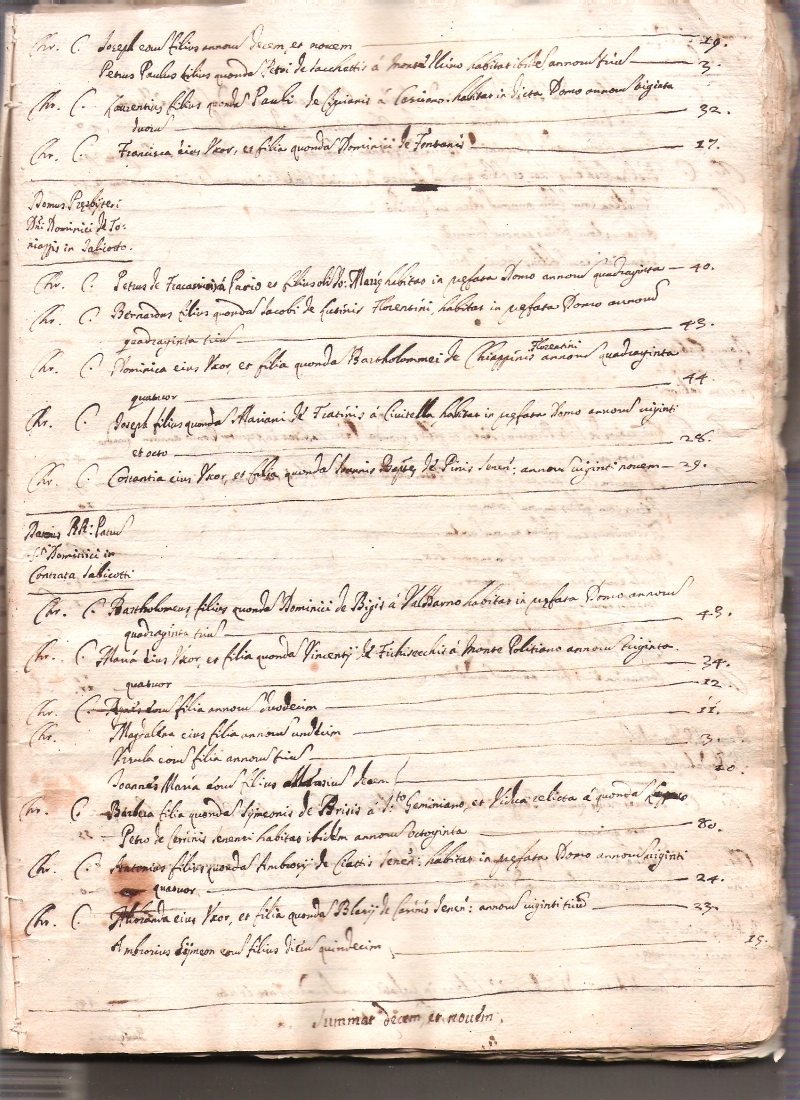 Chr. C. Joseph eorum filius annorum decem, et novem — 19.
Petrus Paulus filius quondam Petri de Sacchettis á Monte habitat ibidem annorum trium — 3.
Chr. C. Laurentius filius quondam Pauli de Ciprianis á habitat in dicta Domo annorum triginta
duorum — 32.
Chr. C. Francisca eius Uxor, et filia quondam Dominici de Fontanis — 17.
Domus Presbiteri
Dñi Dominici de To-
niazzis in Salicotto.
Chr. C. Petrus de á et filius habitat in prefata Domo annorum quadraginta — 40.
Chr. C. Bernardus filius quondam Jacobi de Florentini, habitat in prefata Domo annorum
quadraginta trium — 43.
Florentini
Chr. C. Dominica eius Uxor, et filia quondam Bartholommei de Chiappinis annorum quadraginta
quatuor — 44
Chr. C. Joseph filius quondam Mariani de Fratinis á Civitella habitat in prefata Domo annorum viginti
et octo — 28.
Chr. C. Costantia eius Uxor, et filia quondam Joannis Bapte de Pinis Senen: annorum viginti novem — 29.
Domus RR: Patrum
Sti Dominici in
Contrata Salicotti
Chr. C. Bartholomeus filius quondam Dominici de Bigis á Valdarno habitat in prefata Domo annorum
quadraginta trium — 43.
Chr. C. Maria eius Uxor, et filia quondam Vincentij de Fichisecchis á Monte Politiano annorum triginta
quatuor — 34.
Chr. C. Agnes eorum filia annorum duodecim — 12
Chr. Magdalena eius filia annorum undecim — 11.
Ursula eorum filia annorum trium — 3.
Joannes Maria eorum filius decem — 10
Chr. C. Barbera filia quondam Symeonis de Brisis á Sto Geminiano, et Vidua relicta á quondam
Petro de Cerrinis Senensi habitat ibidem annorum octoginta — 80.
Chr. C. Antonius filius quondam Ambrosij de Ciattis Senen: habitat in prefata Domo annorum viginti
quatuor — 24.
Chr. C. eius Uxor, et filia quondam de Carinis Senen: annorum viginti trium — 23.
Ambrosius Symeon eorum filius dierum quindecim — 15.
Summat decem, et novem.